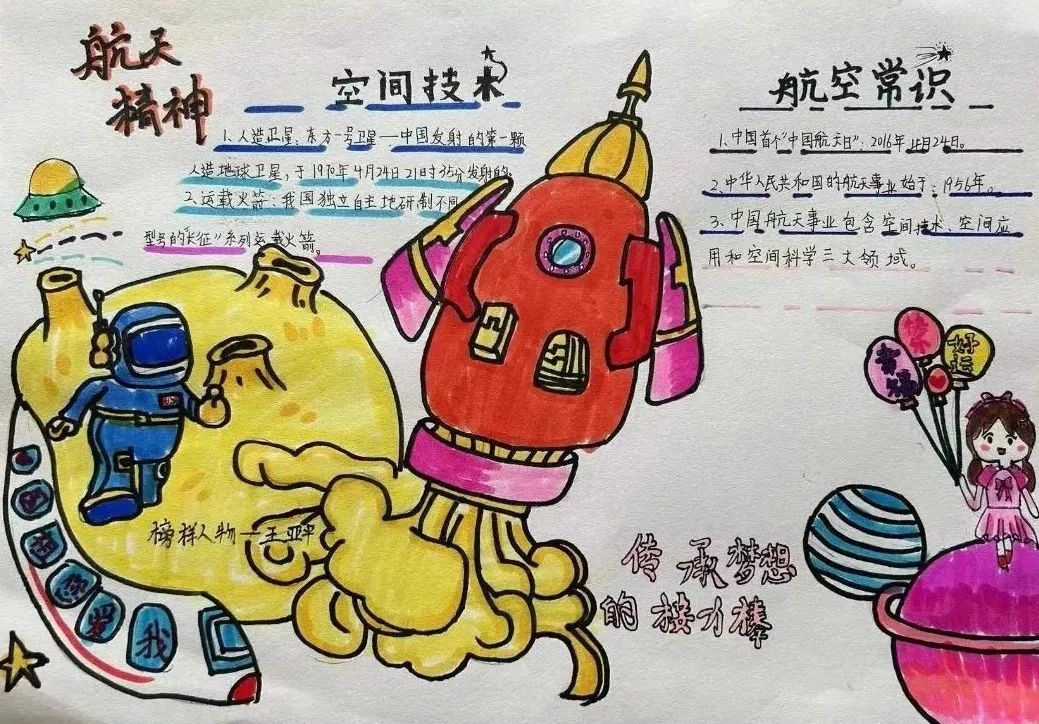 航天
精神
空间技术
1、人造卫星、东方一号卫星——中国发射的第一颗
人造地球卫星，于1970年4月24日21时35分发射的。
2、运载火箭：我国独立自主地研制不同
型号的“长征”系列运载火箭。
航空常识
1、中国首个“中国航天日”，2016年4月24日。
2、中华人民共和国的航天事业始于：1956年。
3、中国航天事业包含空间技术、空间应
用和空间科学三大领域。
好运
榜样人物—王亚平
传承梦想
的接力棒
我
爱
你